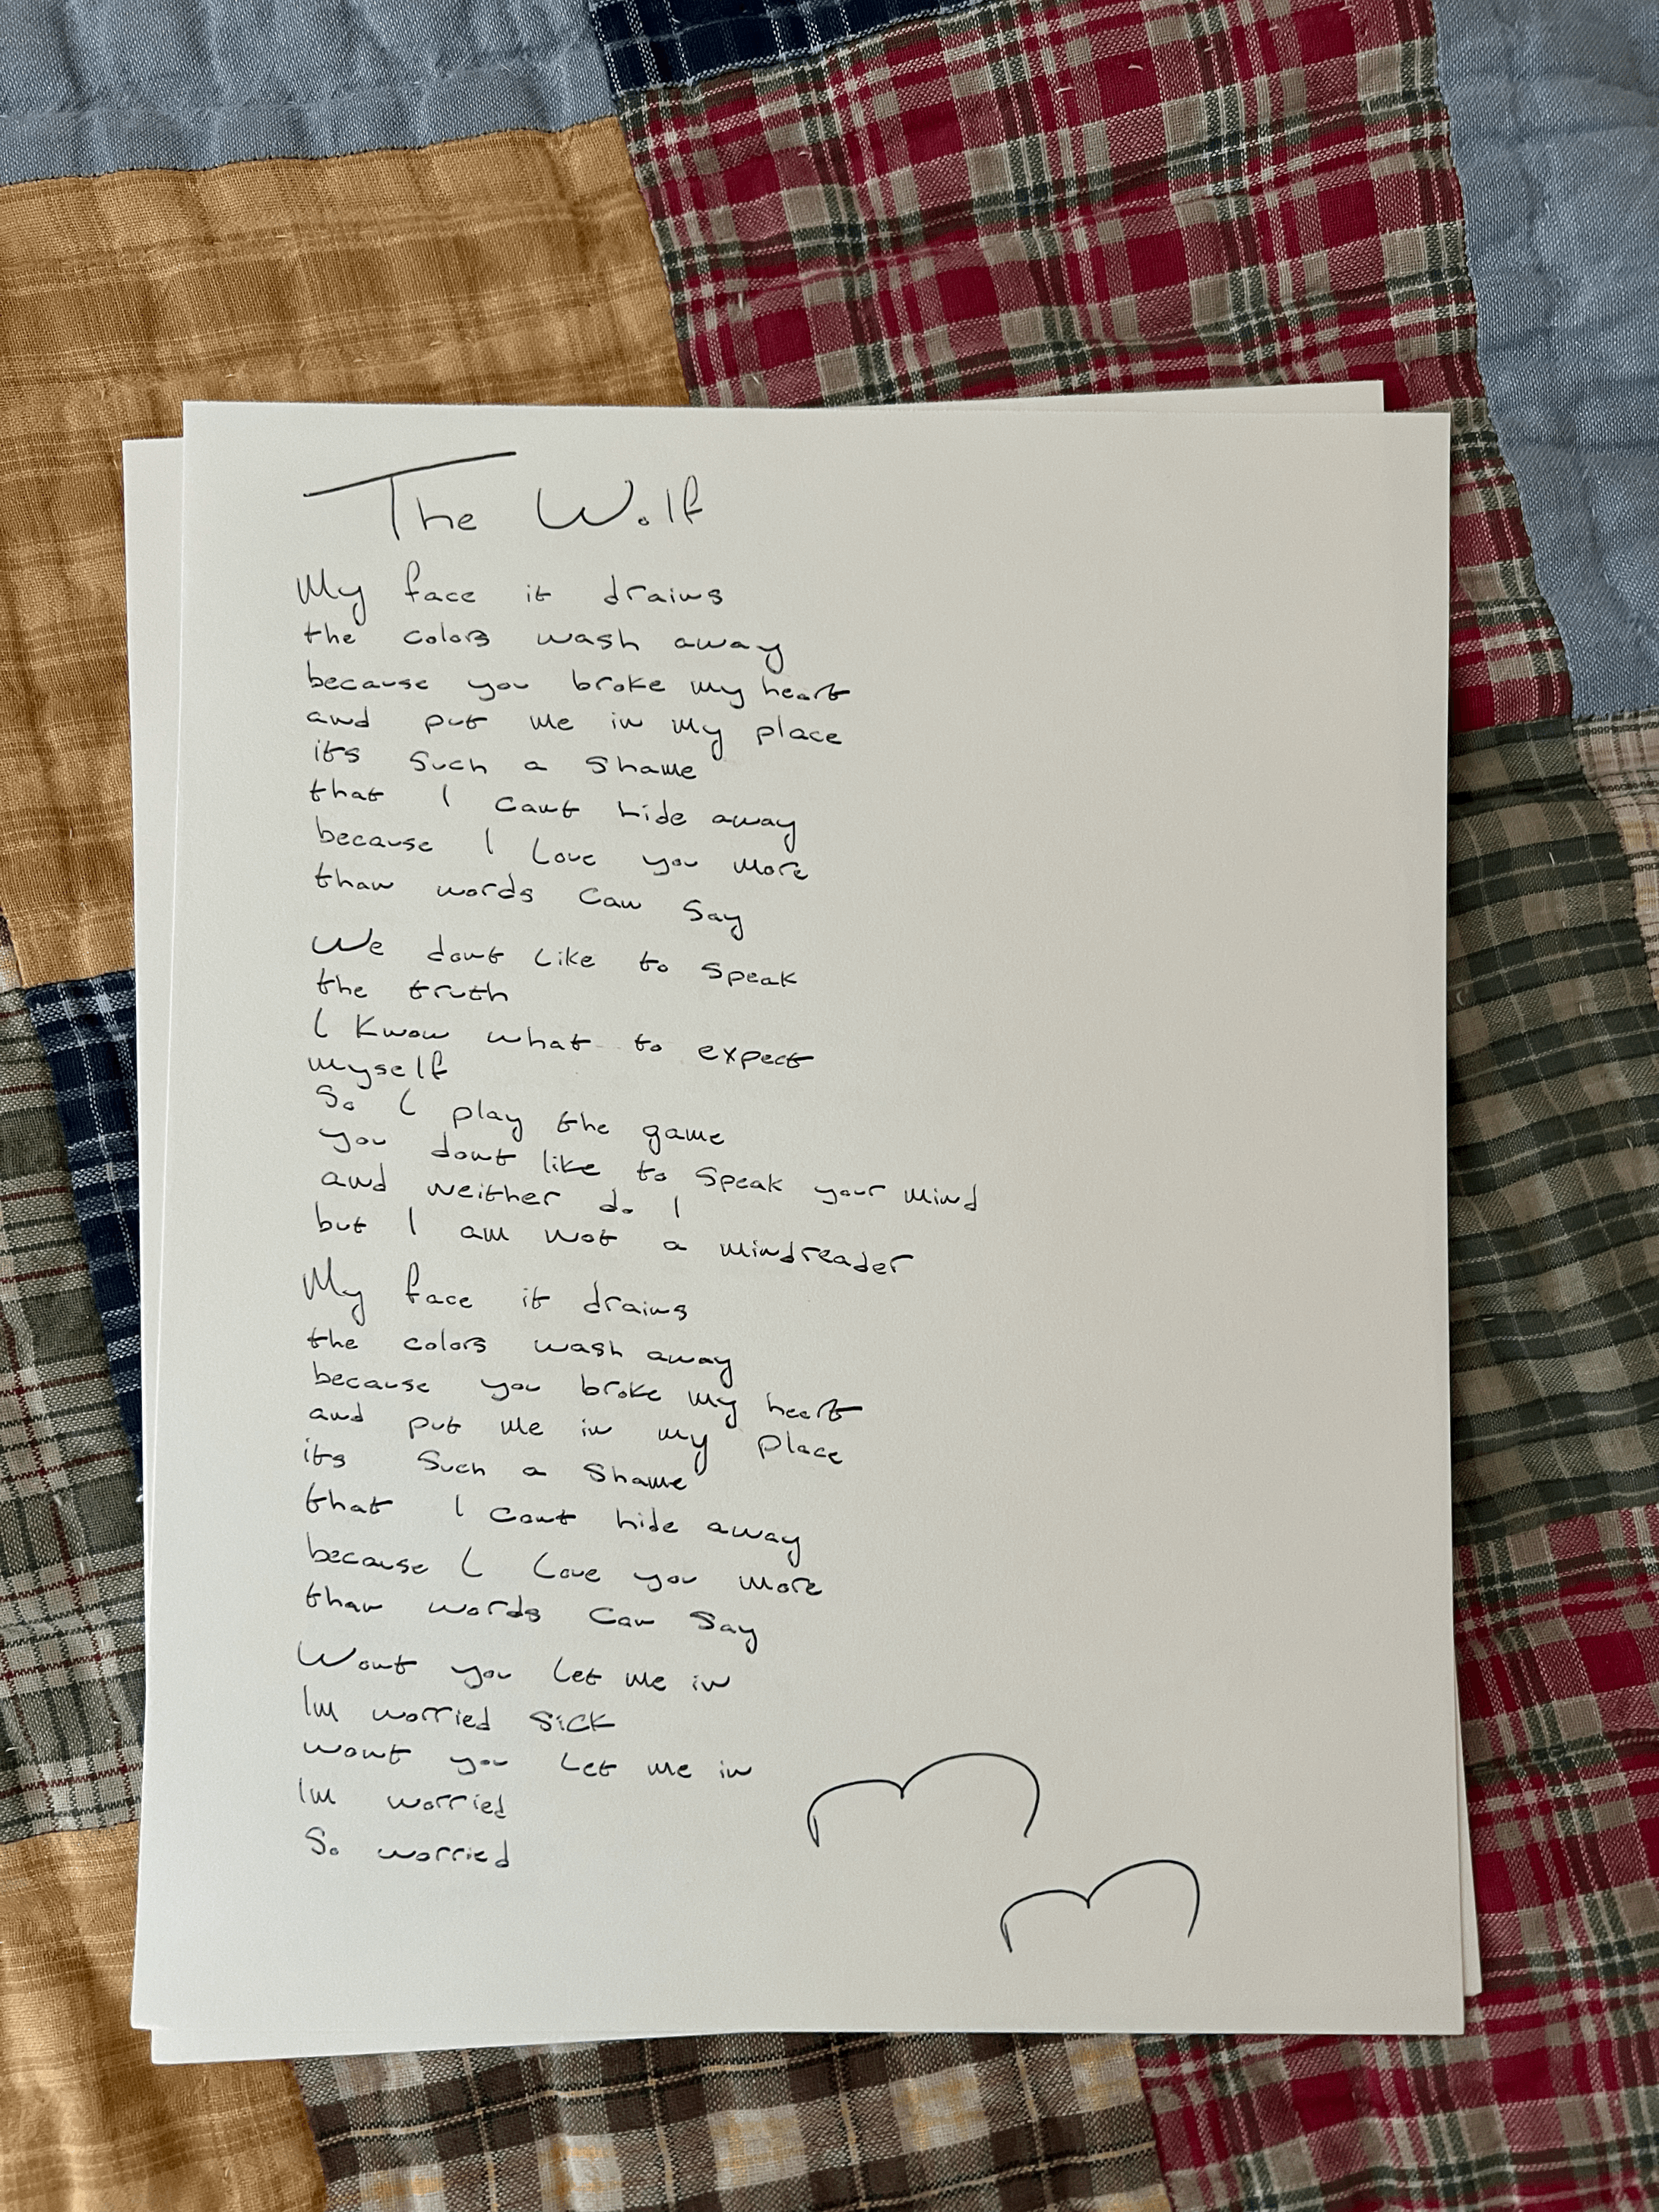 The Wolf
My face it drains
the colors wash away
because you broke my heart
and put me in my place
its such a shame
that I cant hide away
because I love you more
than words can say
We dont like to speak
the truth
I know what to expect
myself
So I play the game
you dont like to speak your mind
and neither do I
but I am not a mindreader
My face it drains
the colors wash away
because you broke my heart
and put me in my place
its such a shame
that I cant hide away
because I love you more
than words can say
Wont you let me in
Im worried sick
wont you let me in
Im worried
So worried